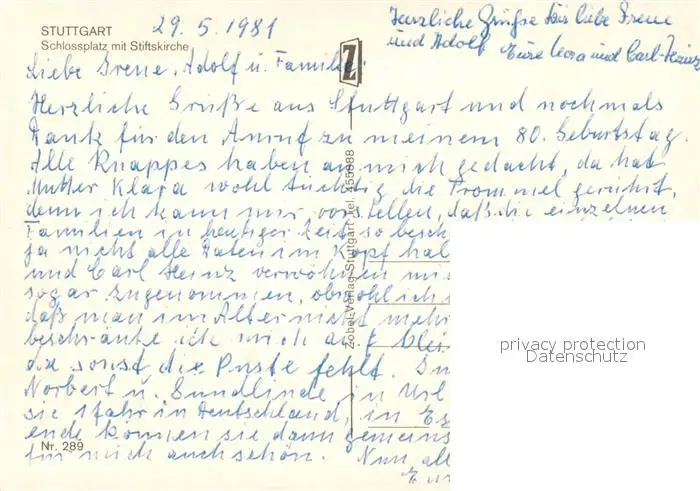 STUTTGART
Schlossplatz mit Stiftskirche
29.5.1981
Herzliche Grüße für liebe Irene
und Adolf Eure Lora und Carl-Heinz
Liebe Irene, Adolf u. Familie,
Herzliche Grüße aus Stuttgart und nochmals
Dank für den Anruf zu meinem 80. Geburtstag.
Alle Knappes haben an mich gedacht, da hat
Mutter Klara wohl tüchtig die Trommel gerührt,
denn ich kann mir vorstellen, daß die einzelnen
Familien in heutiger Zeit so besch
ja nicht alle Daten im Kopf hab
und Carl Heinz verwöhnen mi
sogar zugenommen, obwohl ich
daß man im Alter nicht mehr
beschränke ich mich auf klei
da sonst die Puste fehlt.
Norbert u. in
sie 1 Jahr in Deutschland, in
ende können sie dann gemeins
für mich auch schön. Nun all
Zobel-Verlag Stuttgart
Nr. 289
privacy protection
Datenschutz